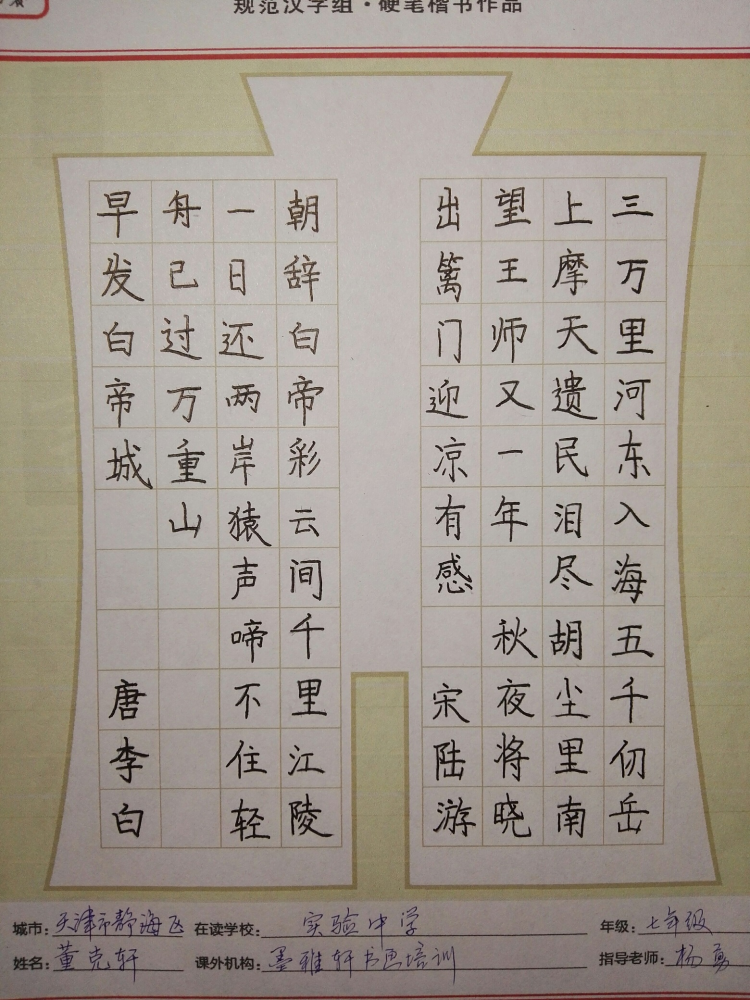 规范汉字组·硬笔楷书作品
三万里河东入海五千仞岳
上摩天遗民泪尽胡尘里南
望王师又一年 秋夜将晓
出篱门迎凉有感 宋陆游
朝辞白帝彩云间千里江陵
一日还两岸猿声啼不住轻
舟已过万重山
早发白帝城 唐李白
城市:天津市静海区 在读学校:实验中学 年级:七年级
姓名:董克轩 课外机构:墨雅轩书画培训 指导老师:杨勇